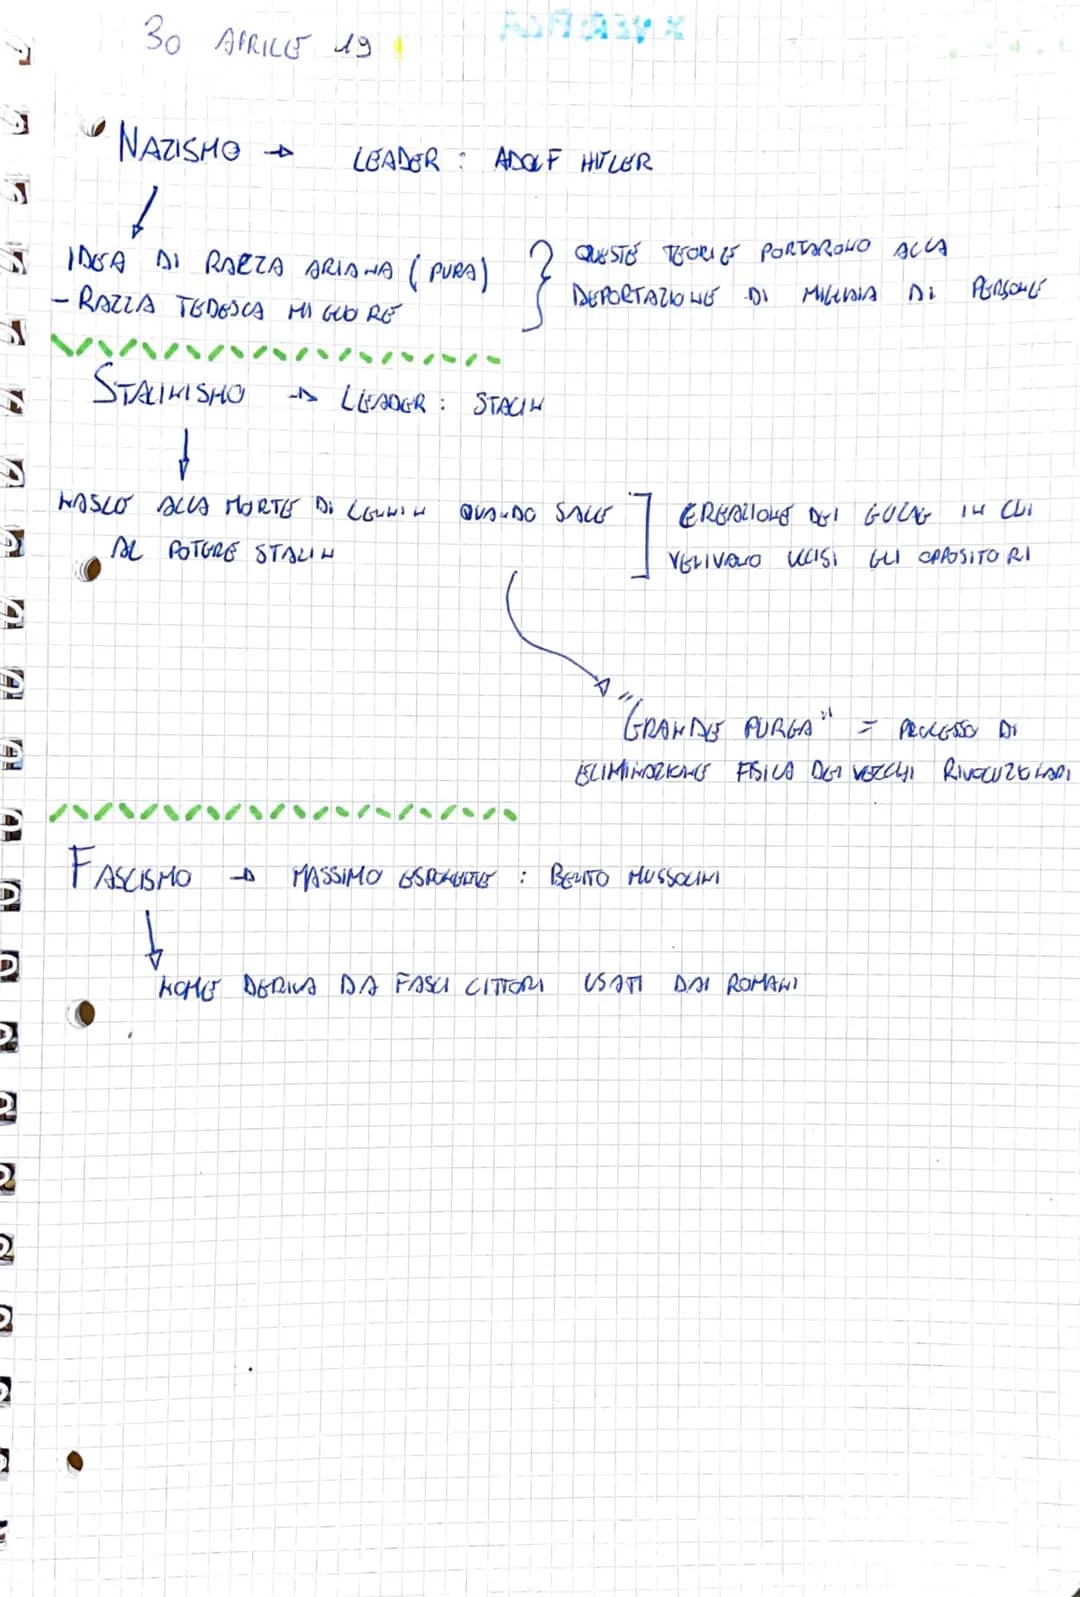 30 APRILE 19
NAZISMO → LEADER : ADOLF HITLER
IDEA DI RAZZA ARIANA (PURA)
- RAZZA TEDESCA MIGLIORE
QUESTE TEORIE PORTARONO ALLA
DEPORTAZIONE DI MIGLIAIA DI PERSONE
STALINISMO → LEADER : STALIN
NASCE ALLA MORTE DI LENNIN QUANDO SALE
AL POTERE STALIN
CREAZIONE DEI GULAG IN CUI
VENIVANO UCCISI GLI OPPOSITORI
"GRANDE PURGA" = PROCESSO DI
ELIMINAZIONE FISICA DEI VECCHI RIVOLUZIONARI
FASCISMO → MASSIMO ESPONENTE : BENITO MUSSOLINI
NOME DERIVA DA FASCI LITTORI USATI DAI ROMANI